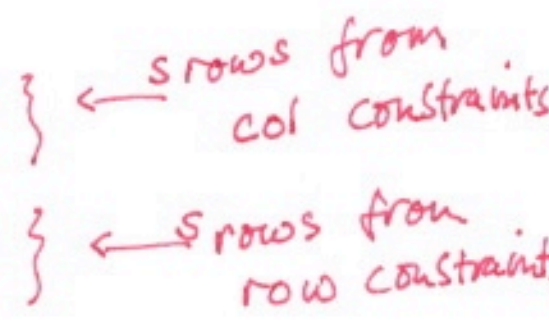 } ← s rows from
col constraints
} ← s rows from
row constraint